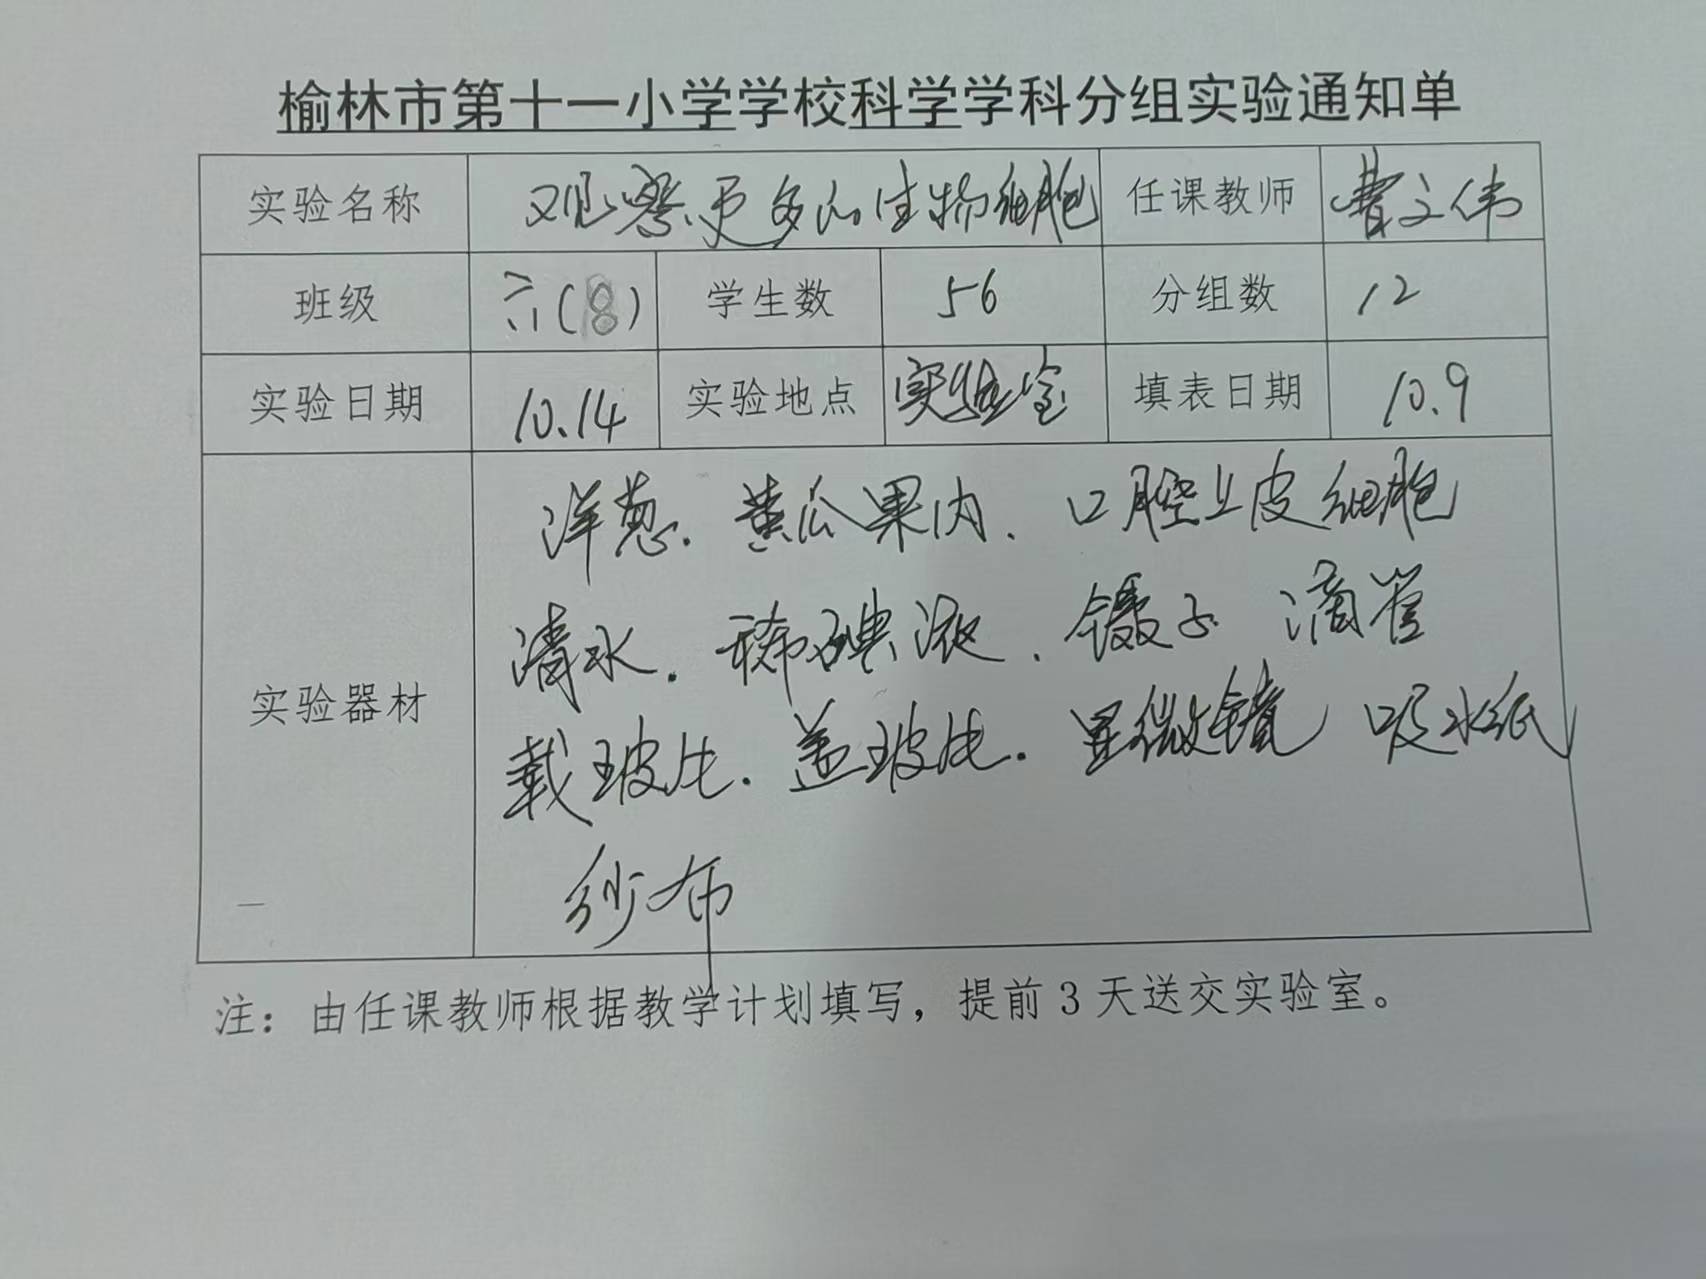 榆林市第十一小学学校科学学科分组实验通知单
实验名称 观察更多的生物细胞 任课教师 曹文伟
班级 六(8) 学生数 56 分组数 12
实验日期 10.14 实验地点 实验室 填表日期 10.9
洋葱. 黄瓜果肉. 口腔上皮细胞
清水. 稀碘液. 镊子 滴管
实验器材
载玻片. 盖玻片. 显微镜 吸水纸
纱布
注：由任课教师根据教学计划填写，提前3天送交实验室。